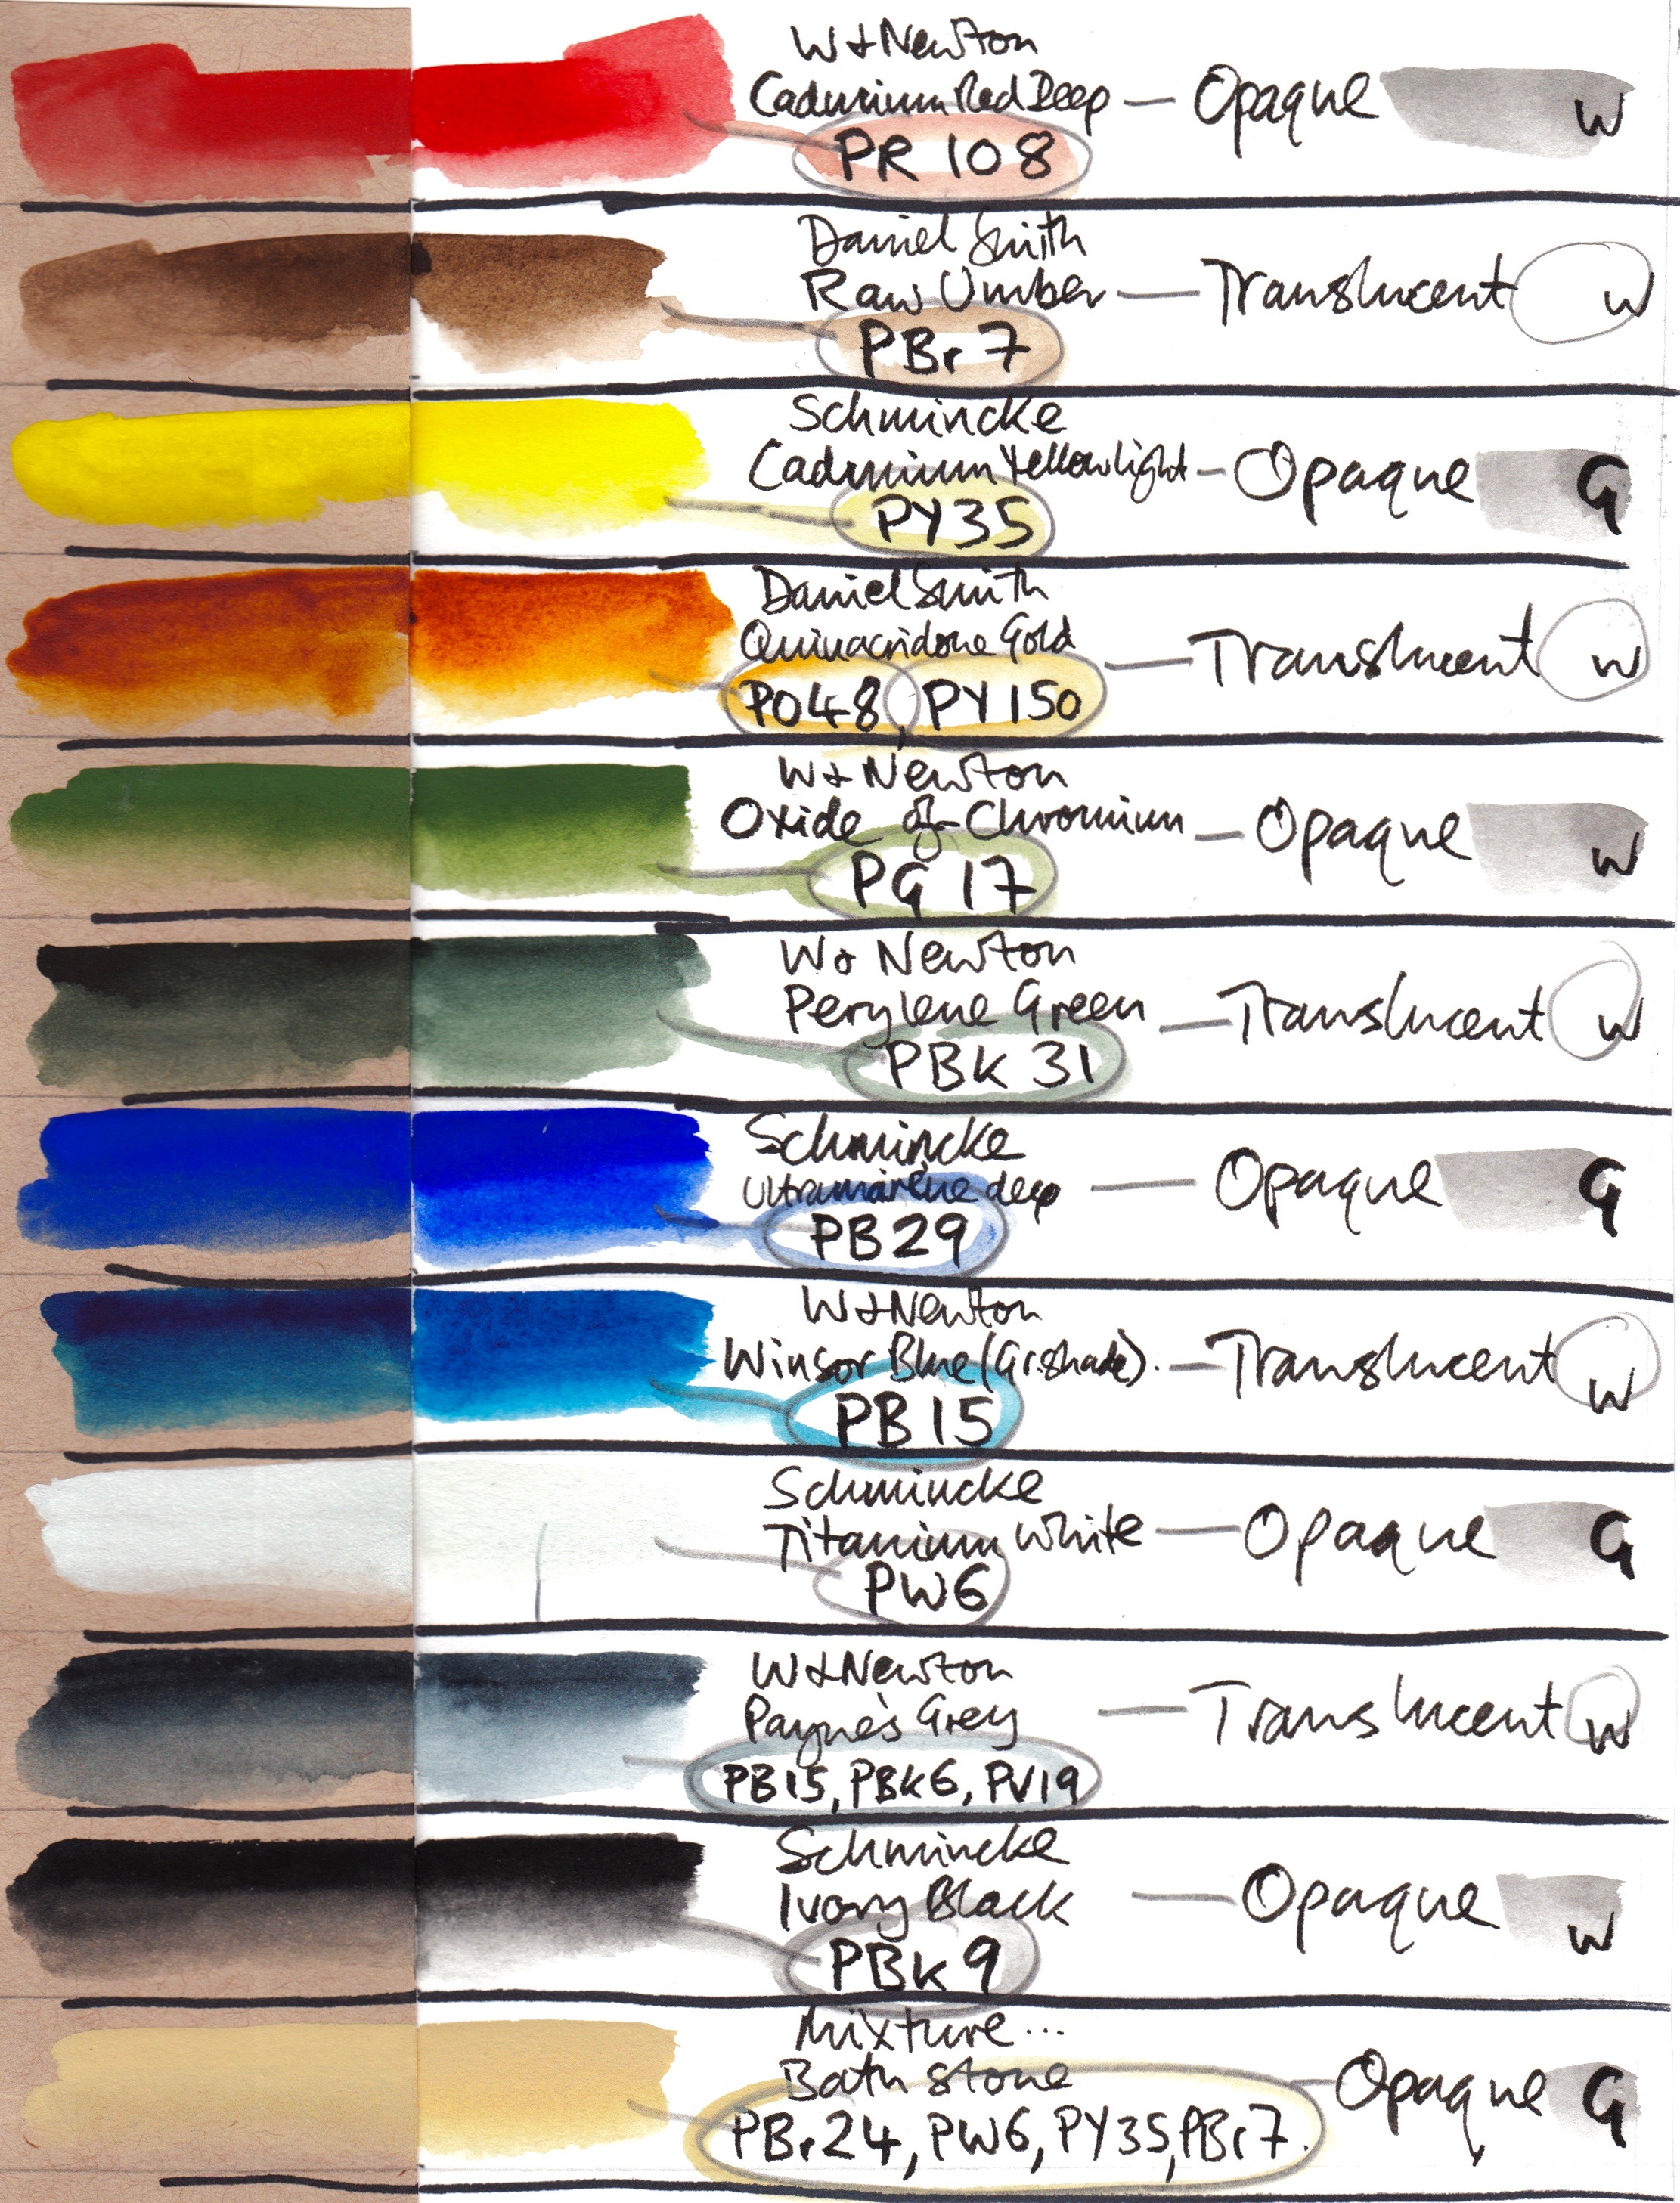 W & Newton
Cadmium Red Deep — Opaque W
PR 108
Daniel Smith
Raw Umber — Translucent W
PBr 7
Schmincke
Cadmium Yellow light — Opaque G
PY35
Daniel Smith
Quinacridone Gold — Translucent W
PO48, PY150
W & Newton
Oxide of Chromium — Opaque W
PG 17
W & Newton
Perylene Green — Translucent W
PBk 31
Schmincke
Ultramarine deep — Opaque G
PB29
W & Newton
Winsor Blue (Gr.shade). — Translucent W
PB15
Schmincke
Titanium White — Opaque G
PW6
W & Newton
Payne's Grey — Translucent W
PB15, PBk6, PV19
Schmincke
Ivory Black — Opaque W
PBk 9
Mixture...
Bath stone — Opaque G
PBr24, PW6, PY35, PBr7.